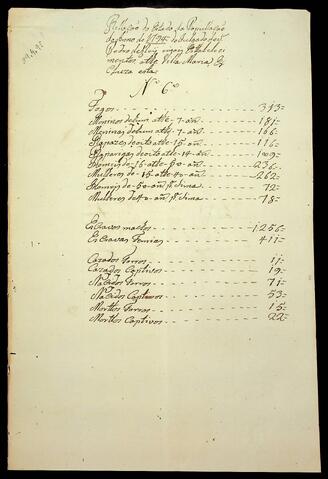 Rellação do Estado da População
do anno de 1794 do Julgado de S.
Pedro de
athe Villa Maria
esta
N.º 6.º
Fogos - - - 343-
Meninos de hum athe 7 an.s - - - 181-
Meninas de hum athe 7 an.s - - - 166-
Rapazes de oito athe 15 an.s - - - 116-
Raparigas de oito athe 14 an.s - - - 109-
Homens de 15 athe 50 an.s - - - 236-
Mulheres de 15 athe 40 an.s - - - 262-
Homens de 50 an.s p.ª sima - - - 72-
Mulheres de 40 an.s p.ª sima - - - 78-
Escravos machos - - - 1256-
Escravas Femias - - - 411-
Cazados Forros - - - 11-
Cazados Captivos - - - 19-
Nacidos Forros - - - 71-
Nacidos Captivos - - - 53-
Morttos Forros - - - 15-
Morttos Captivos - - - 22-